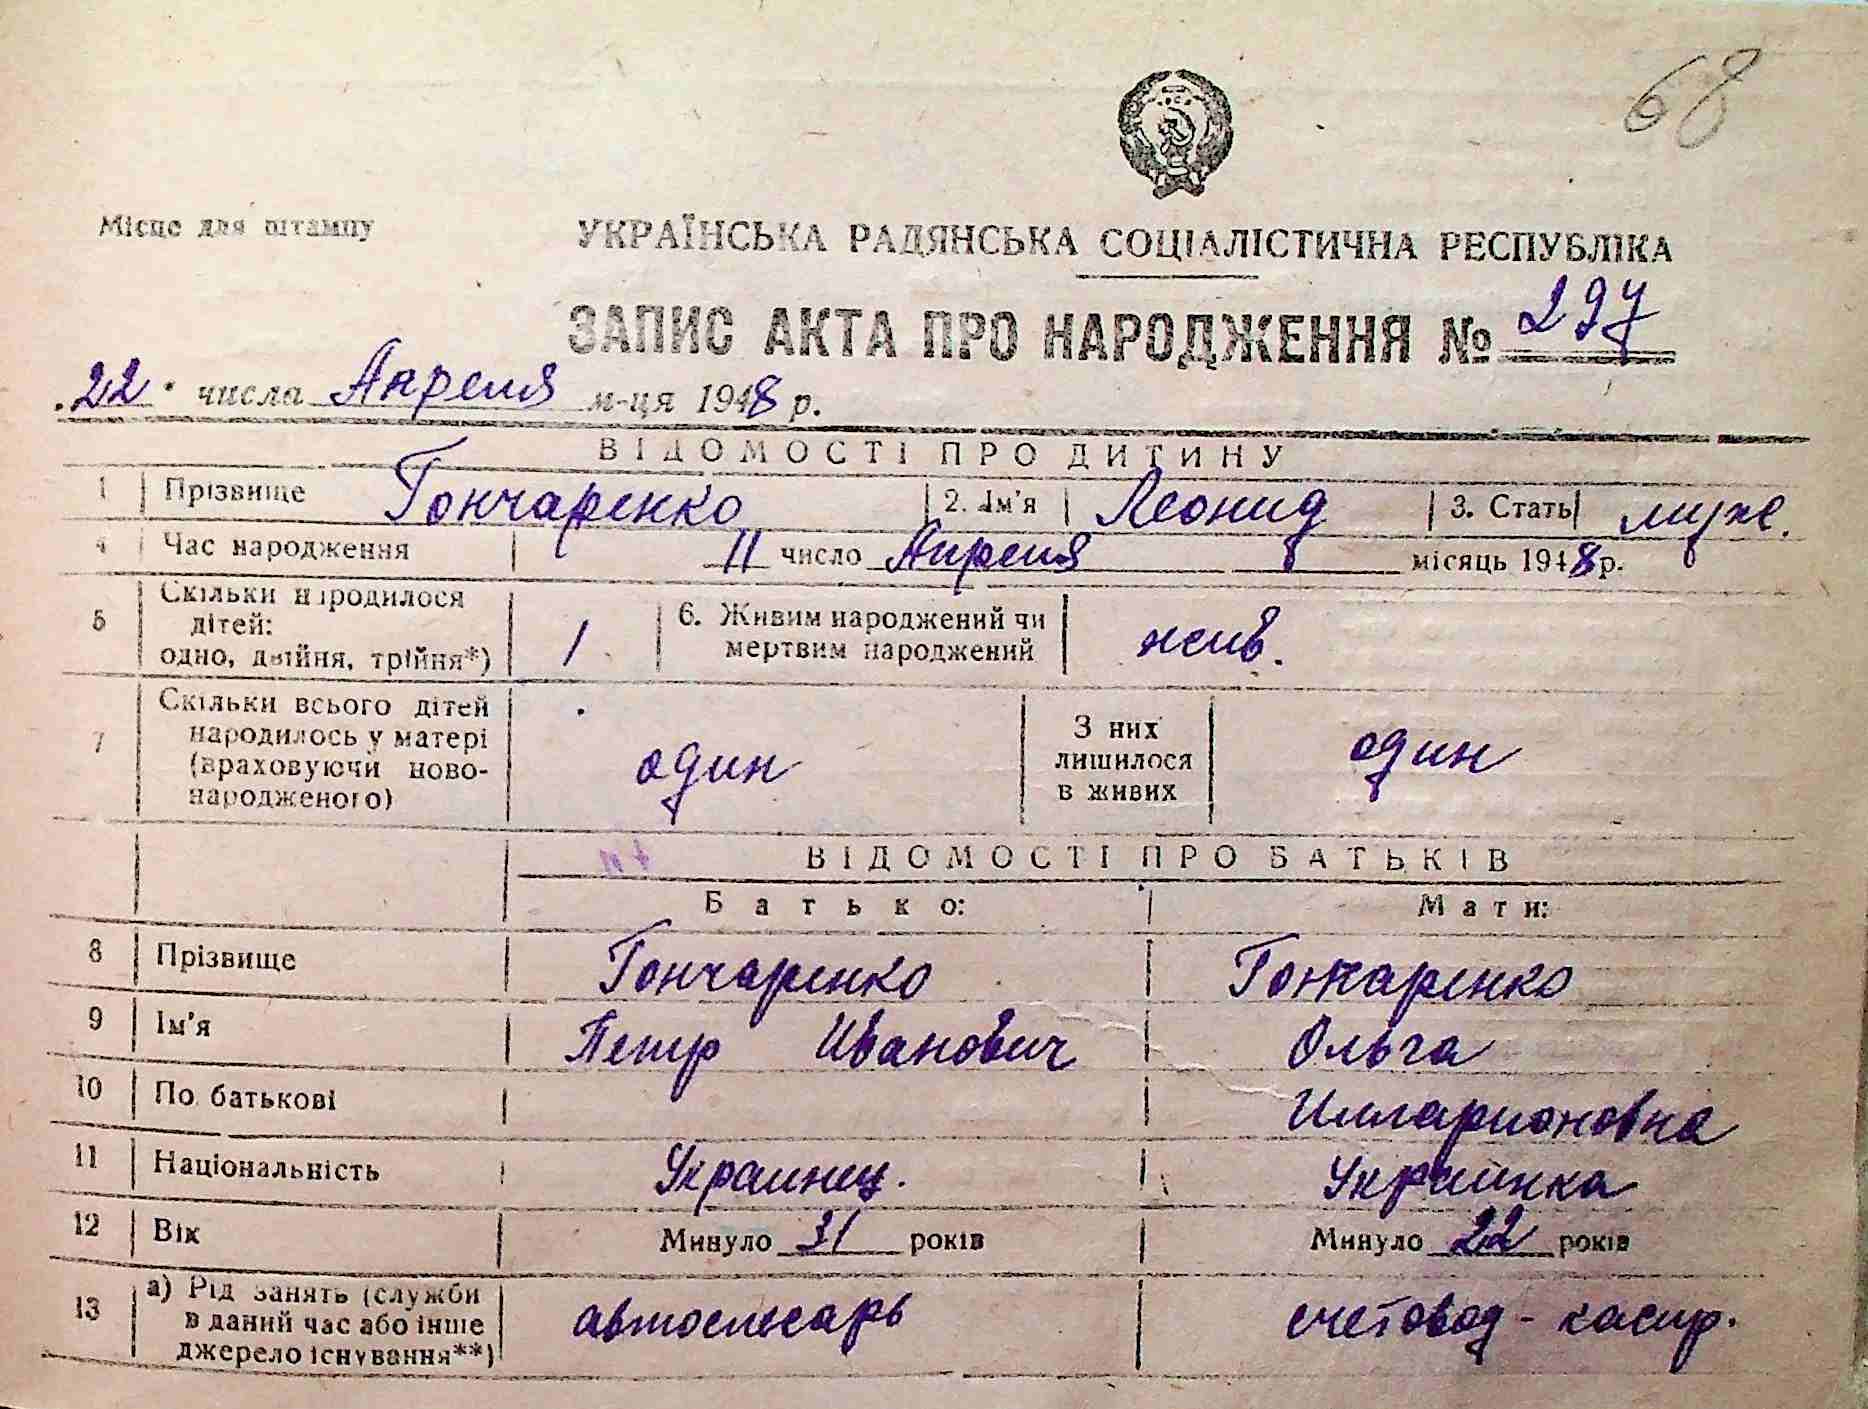 68
Місце для штампу
УКРАЇНСЬКА РАДЯНСЬКА СОЦІАЛІСТИЧНА РЕСПУБЛІКА
ЗАПИС АКТА ПРО НАРОДЖЕННЯ № 297
"22" числа Апреля м-ця 1948 р.
ВІДОМОСТІ ПРО ДИТИНУ
1 Прізвище Гончаренко 2. Ім'я Леонид 3. Стать муж.
4 Час народження 11 число Апреля місяць 1948 р.
5 Скільки народилося
дітей:
одно, двійня, трійня*) 1 6. Живим народжений чи
мертвим народжений жив.
7 Скільки всього дітей
народилось у матері
(враховуючи ново-
народженого) один З них
лишилося
в живих один
ВІДОМОСТІ ПРО БАТЬКІВ
Батько: Мати:
8 Прізвище Гончаренко Гончаренко
9 Ім'я Петр Иванович Ольга
10 По батькові Илларионовна
11 Національність Украинец. Украинка
12 Вік Минуло 31 років Минуло 22 років
13 а) Рід занять (служби
в даний час або інше
джерело існування**) автослесарь счетовод - касир.